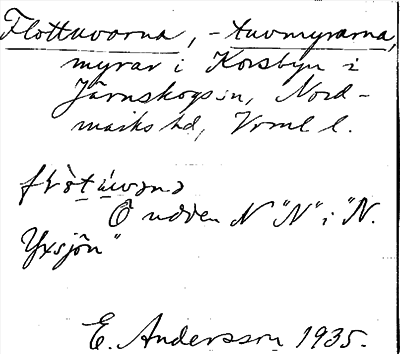 Flottuvorna, -tuvmyrarna,
myrar i Korsbyn i
Järnskogs sn, Nord-
marks hd, Vrml l.
flòtúvoṇa
Ö udden N "N" i "N.
Yxsjön"
E. Andersson 1935.